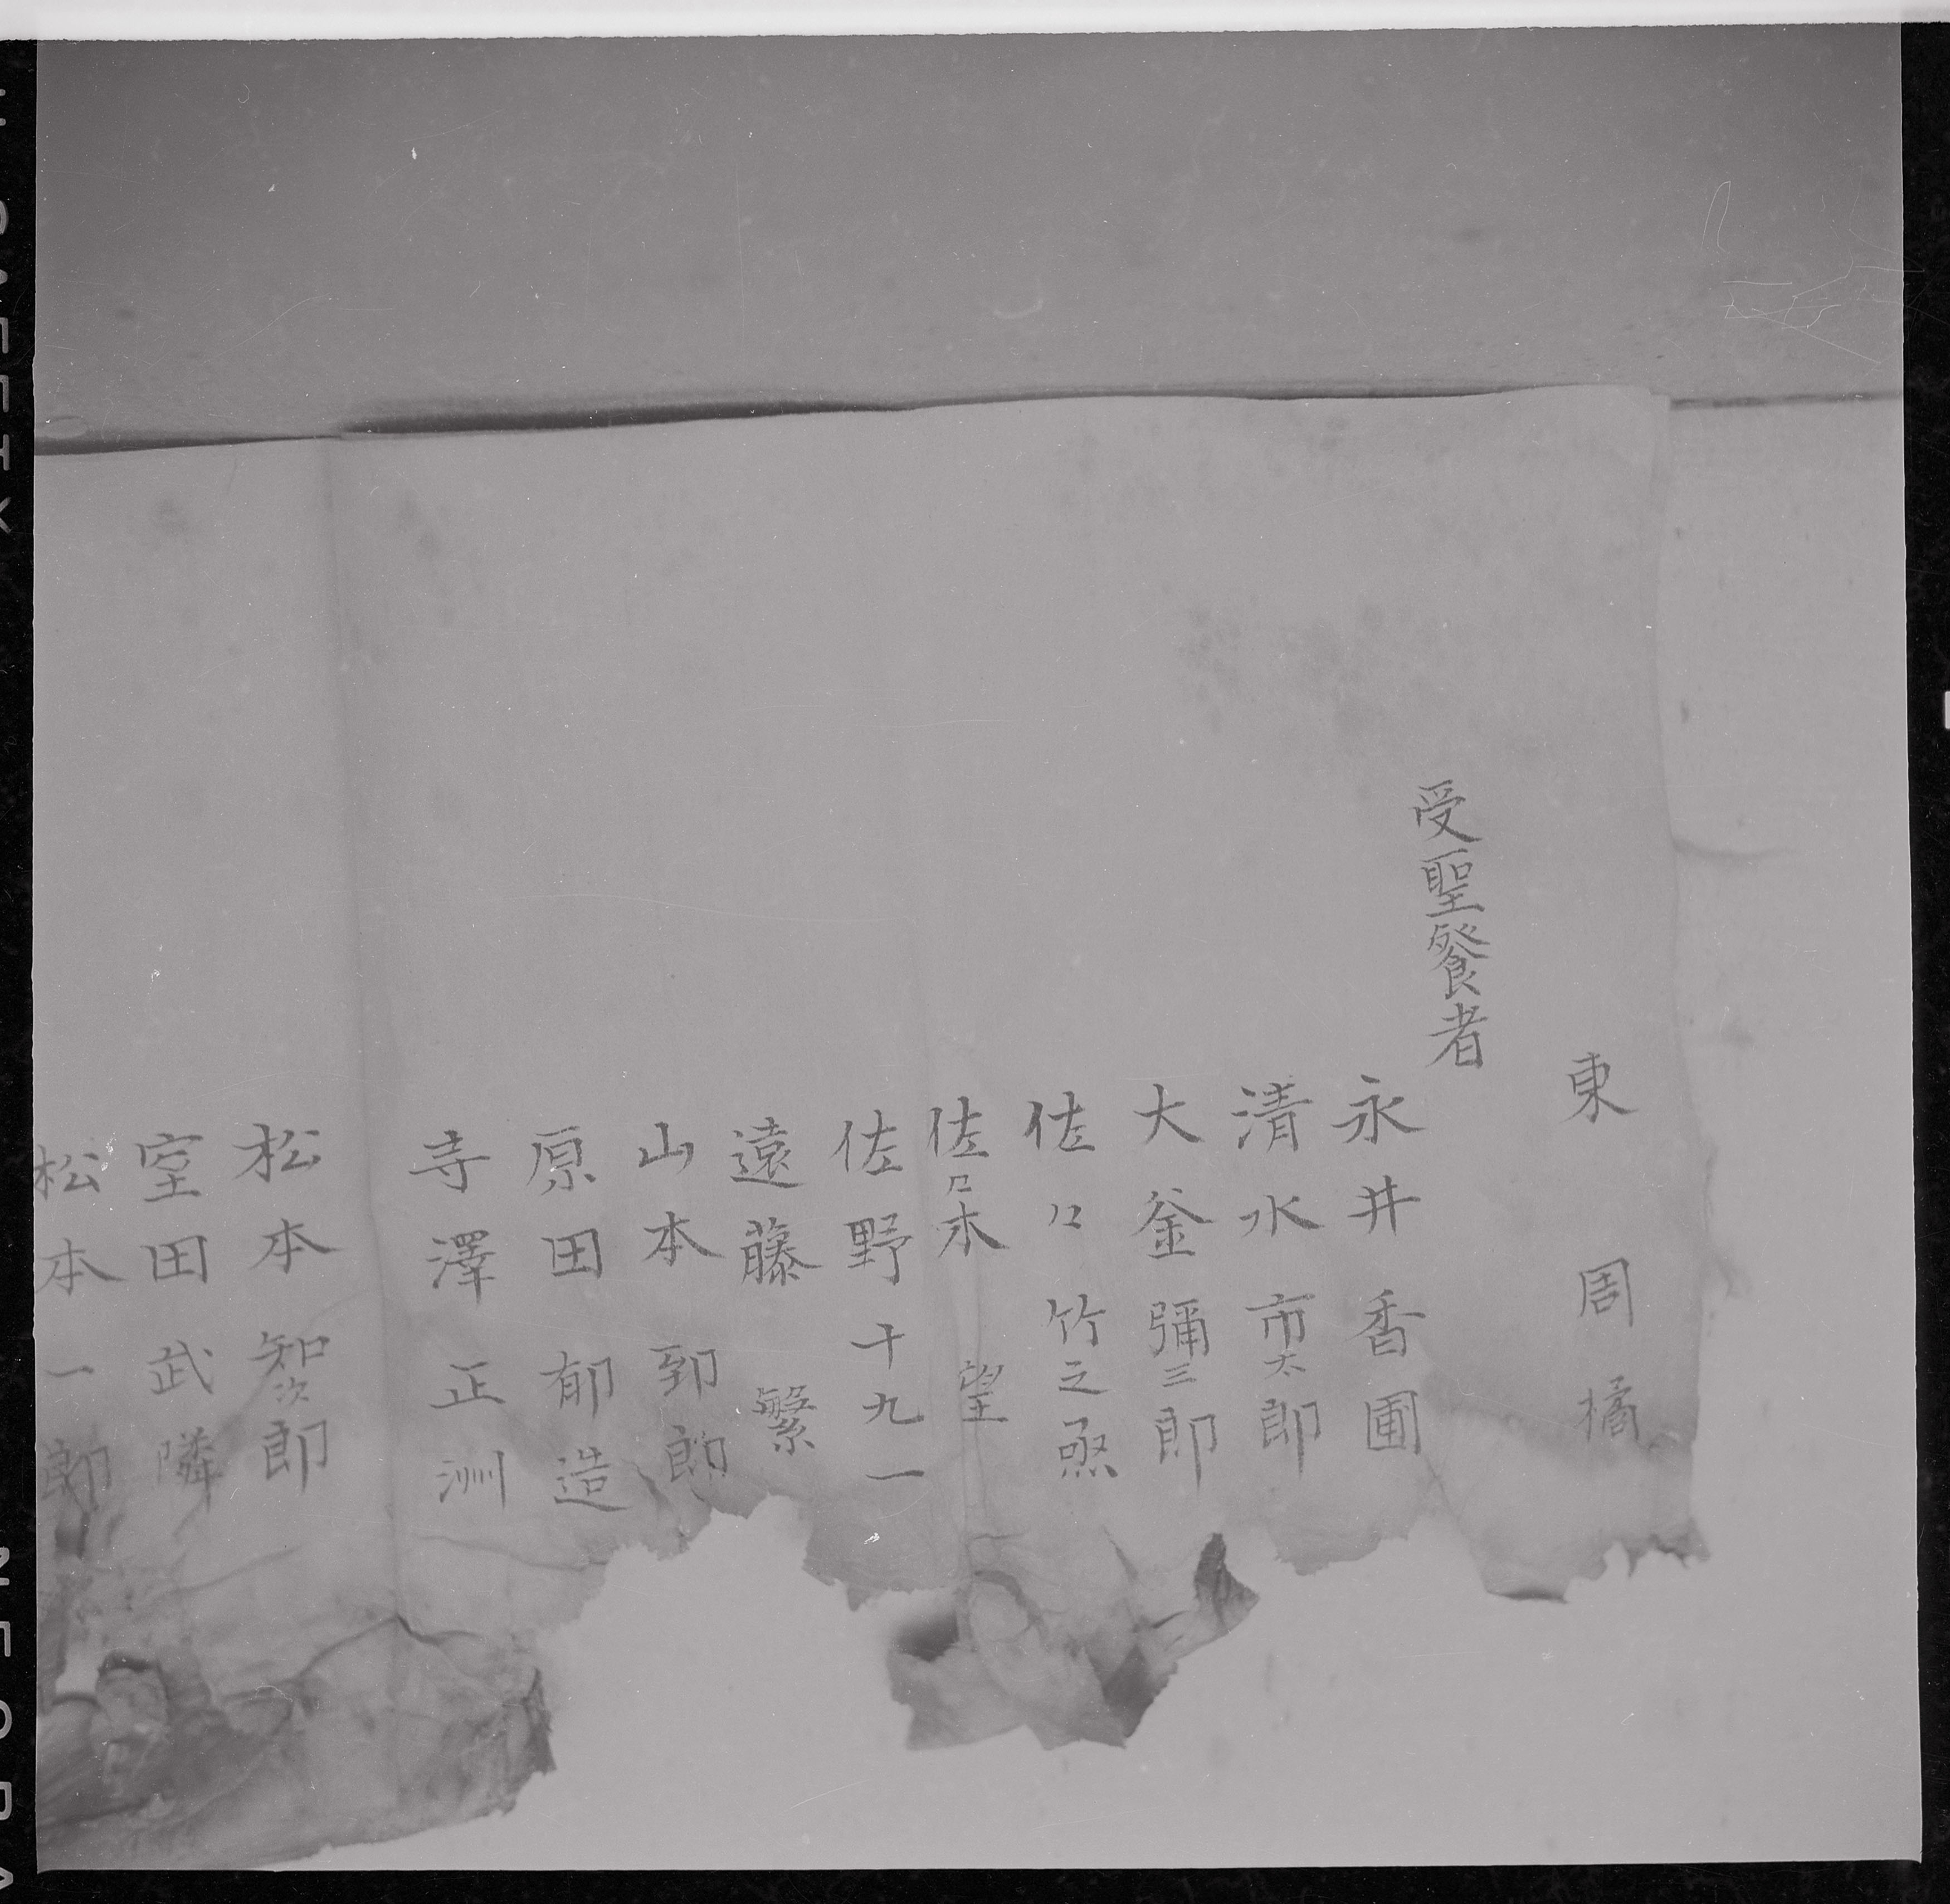 東周橘
受聖餐者
永井香圃
清水市太郎
大釜彌三郎
佐々竹之丞
佐々木望
佐野十九一
遠藤繁
山本到郎
原田郁造
寺澤正洲
松本知次郎
室田武隣
松本一郎